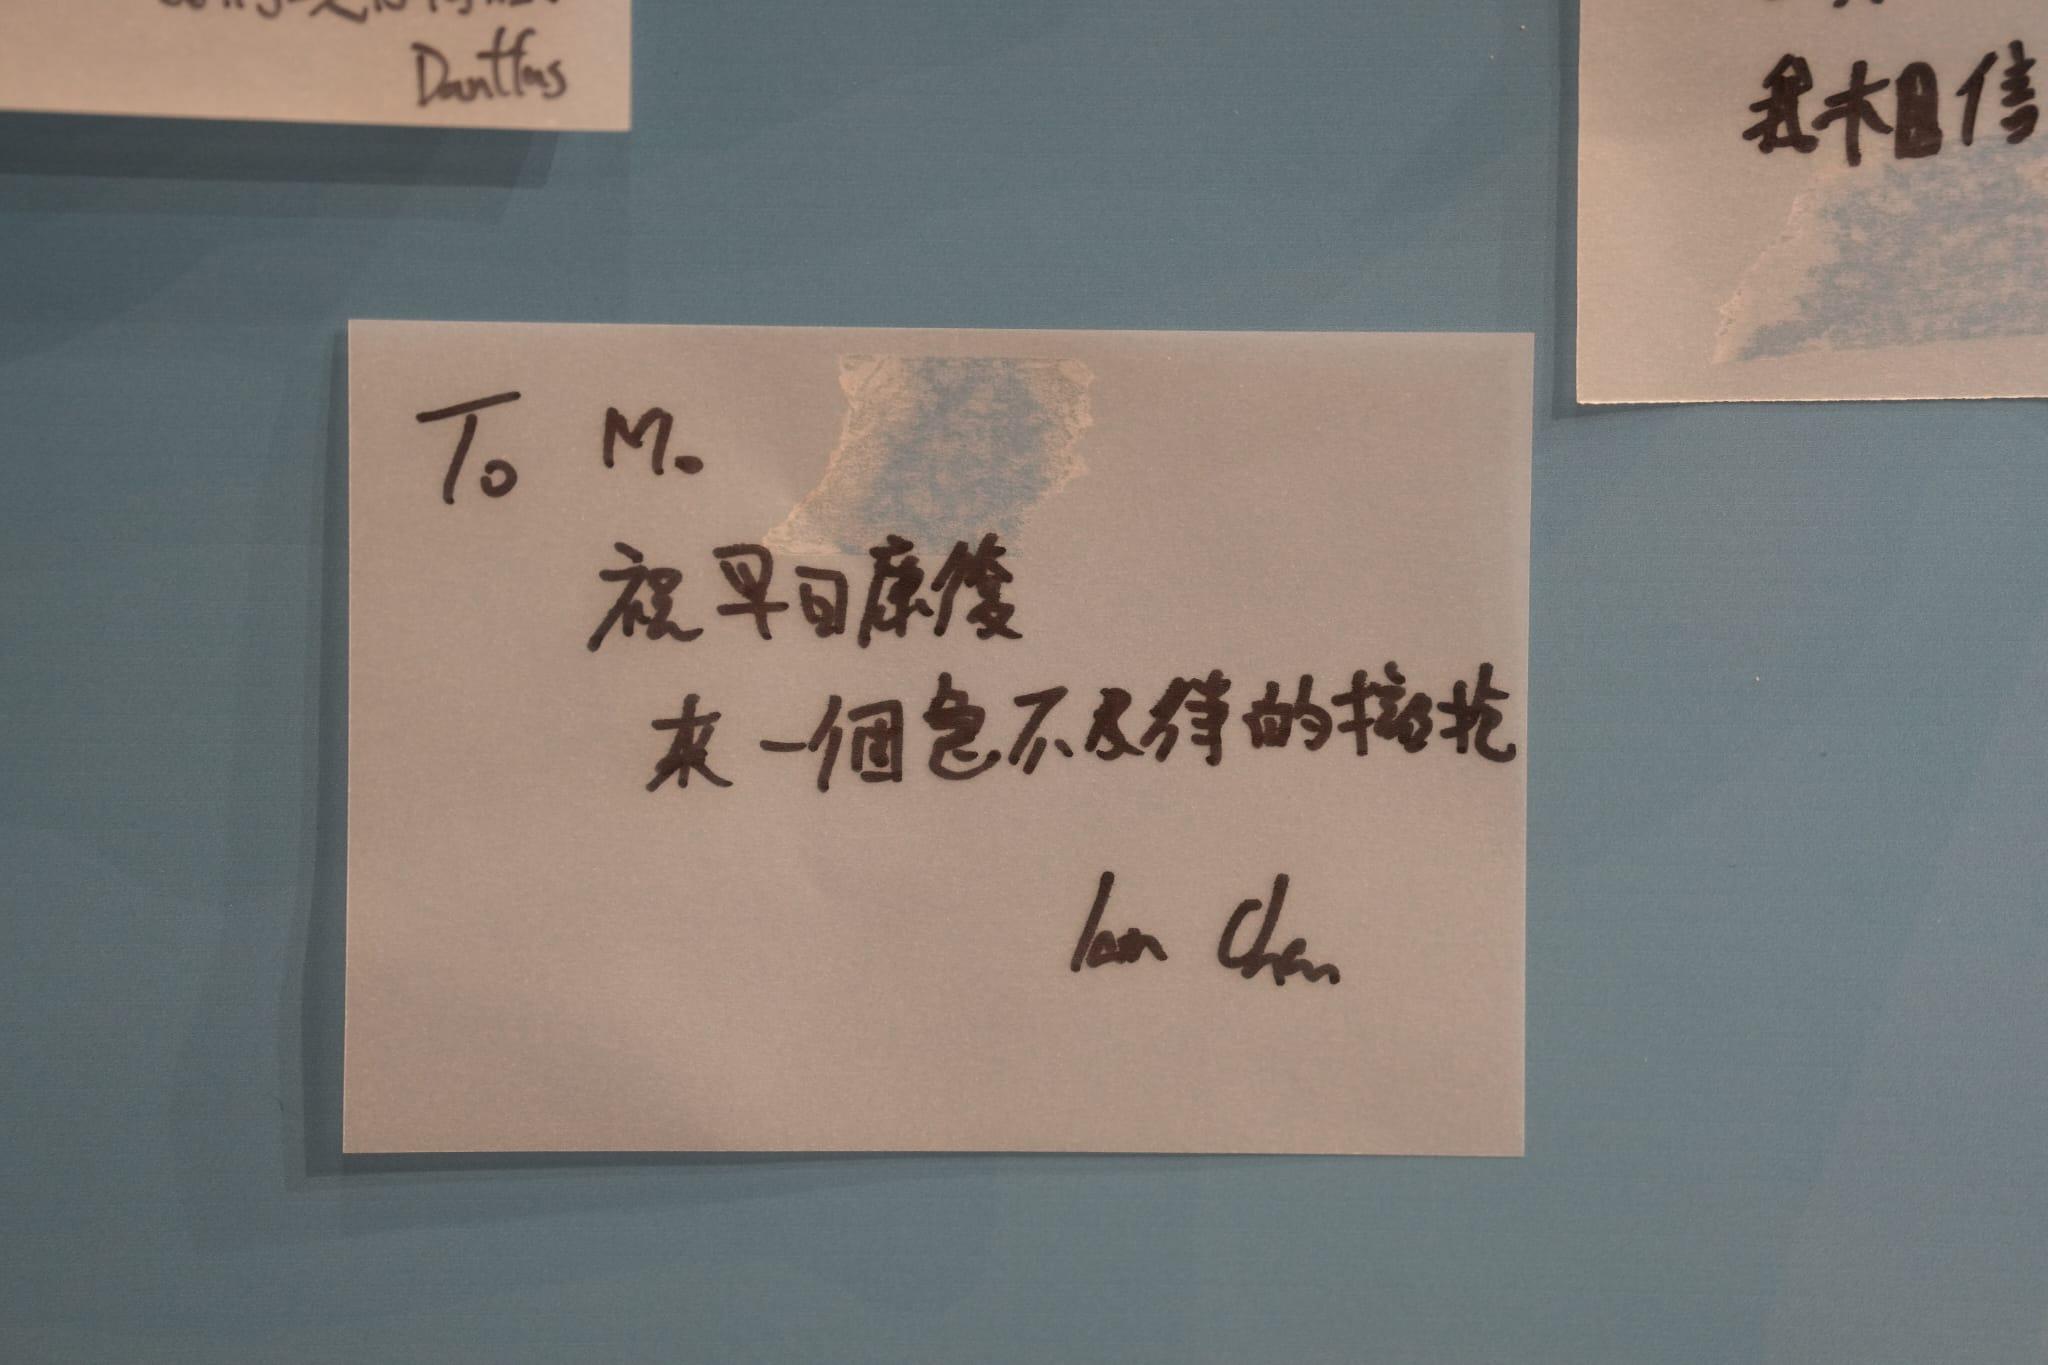 Dantfus
我相信
To M.
祝早日康復
來一個急不及待的擁抱
Ian Chan